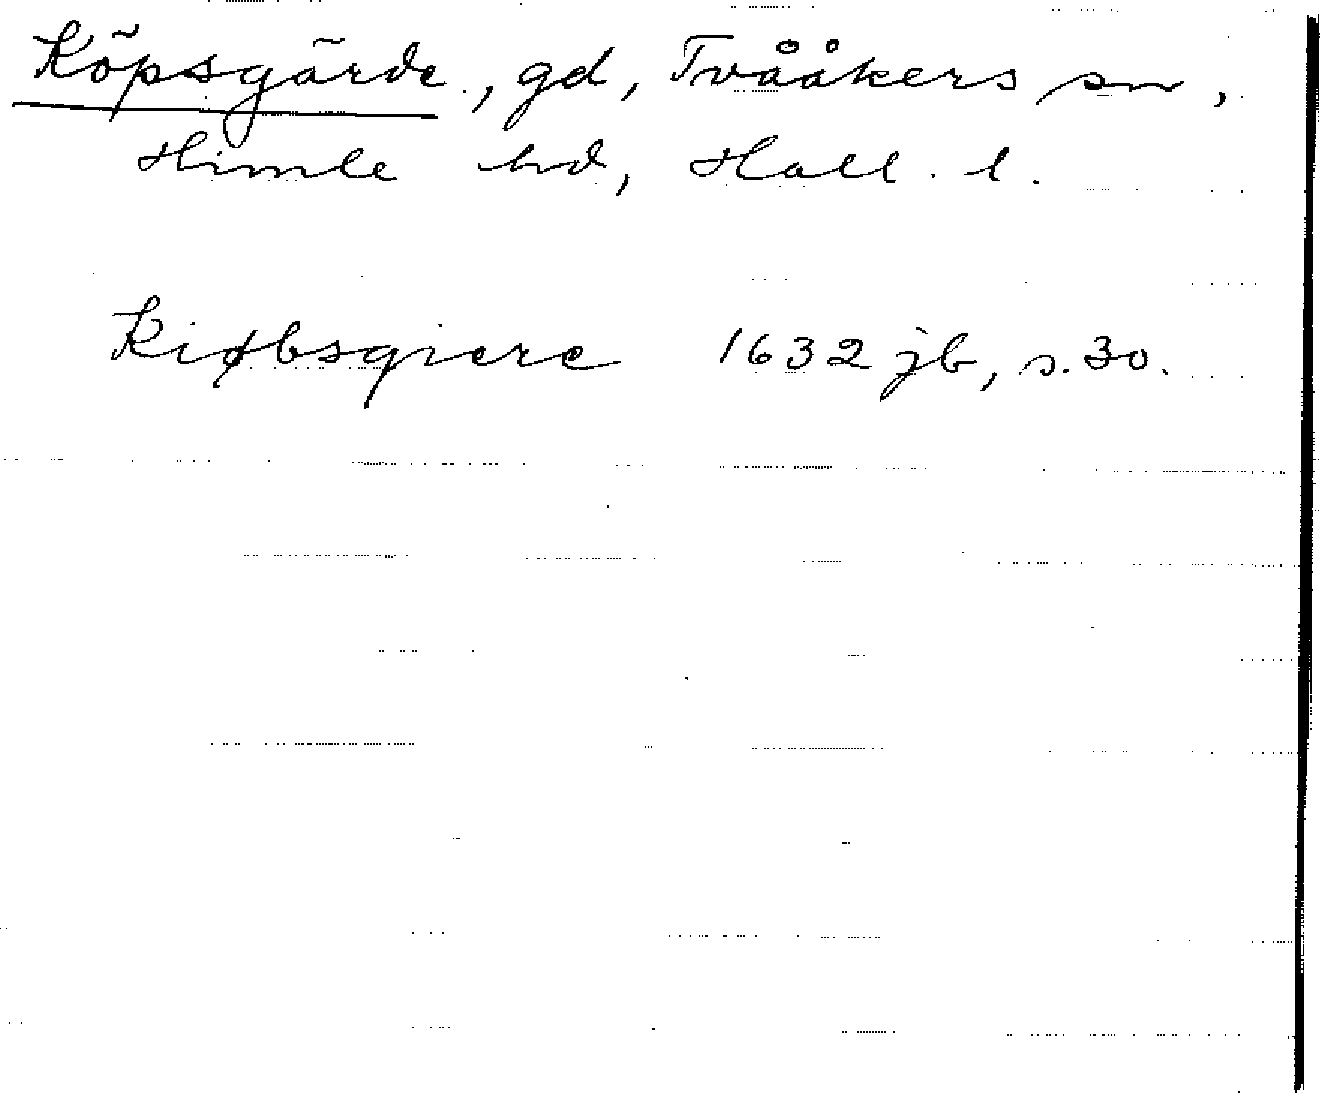 Köpsgärde, gd, Tvååkers sn,
Himle hd, Hall. l.
Kiøbsgiere 1632 jb, s. 30.